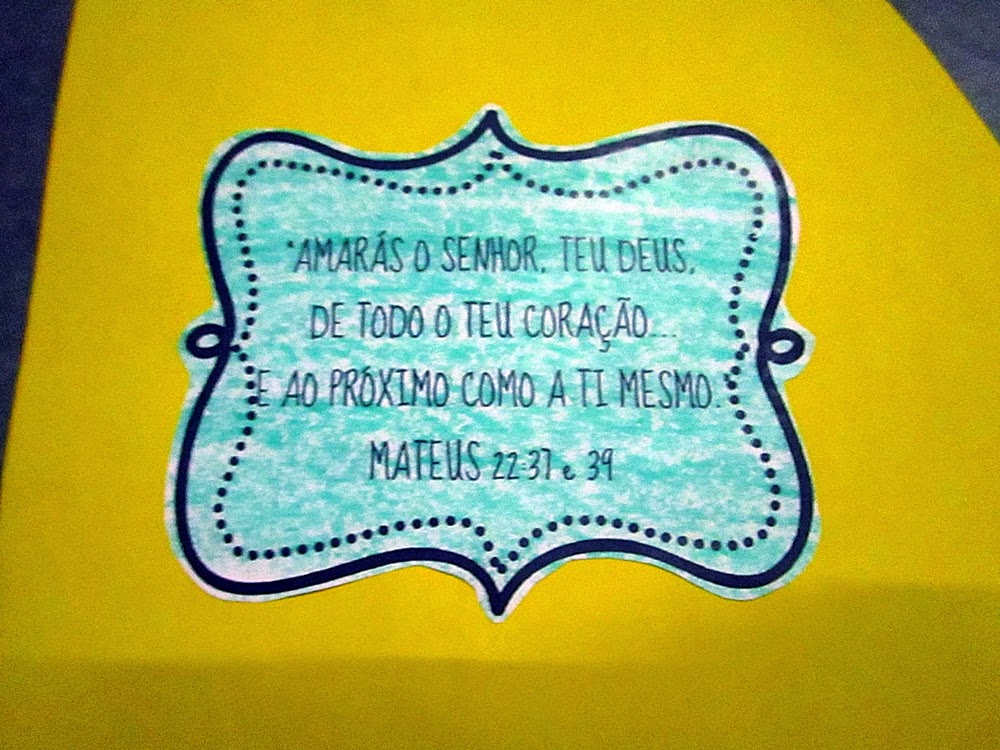 "AMARÁS O SENHOR, TEU DEUS,
DE TODO O TEU CORAÇÃO...
E AO PRÓXIMO COMO A TI MESMO."
MATEUS 22:37 e 39